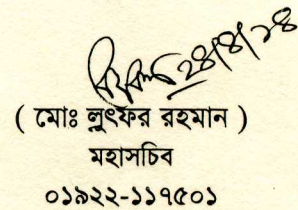 ২৪/৪/১৪
( মোঃ লুৎফর রহমান )
মহাসচিব
০১৯২২-১১৭৫০১